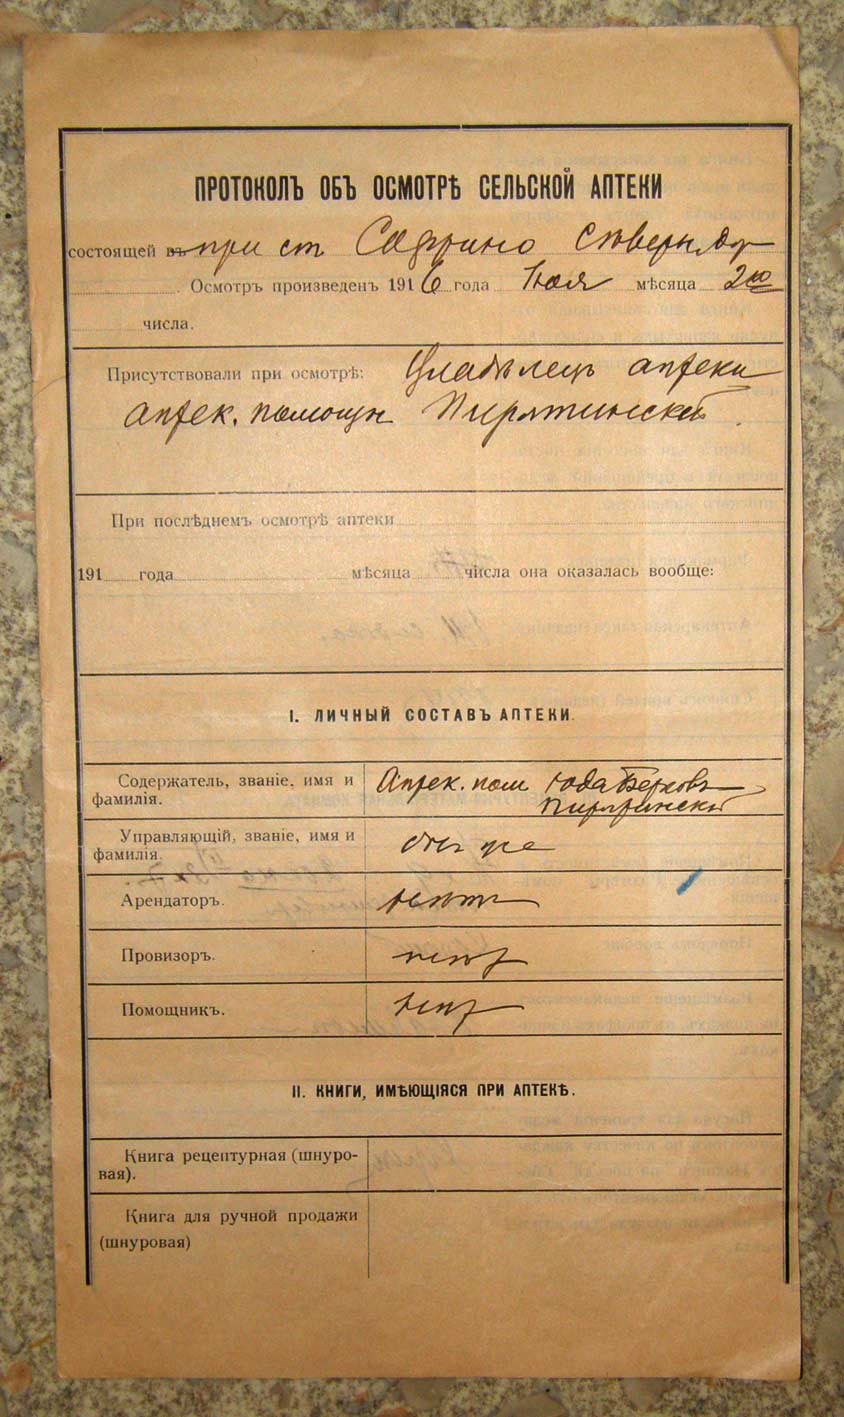 ПРОТОКОЛЪ ОБЪ ОСМОТРѢ СЕЛЬСКОЙ АПТЕКИ
состоящей въ при ст Софрино Сѣверн. дор
Осмотръ произведенъ 1916 года Іюля мѣсяца 2го
числа.
Присутствовали при осмотрѣ: Владѣлецъ аптеки
аптек. помощн Пирятинскій
При послѣднемъ осмотрѣ аптеки
191 года мѣсяца числа она оказалась вообще:
I. ЛИЧНЫЙ СОСТАВЪ АПТЕКИ.
Содержатель, званіе, имя и Аптек. пом Юда Берковъ
фамилія. Пирятинскій
Управляющій, званіе, имя и
фамилія. онъ же
Арендаторъ. нѣтъ
Провизоръ. нѣтъ
Помощникъ. нѣтъ
II. КНИГИ, ИМѢЮЩІЯСЯ ПРИ АПТЕКѢ.
Книга рецептурная (шнуро-
вая).
Книга для ручной продажи
(шнуровая)